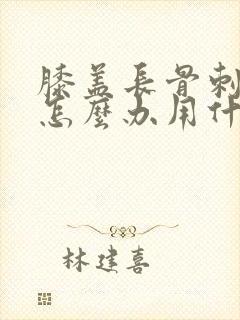 膝盖長骨刺
怎麼办用什
林建喜